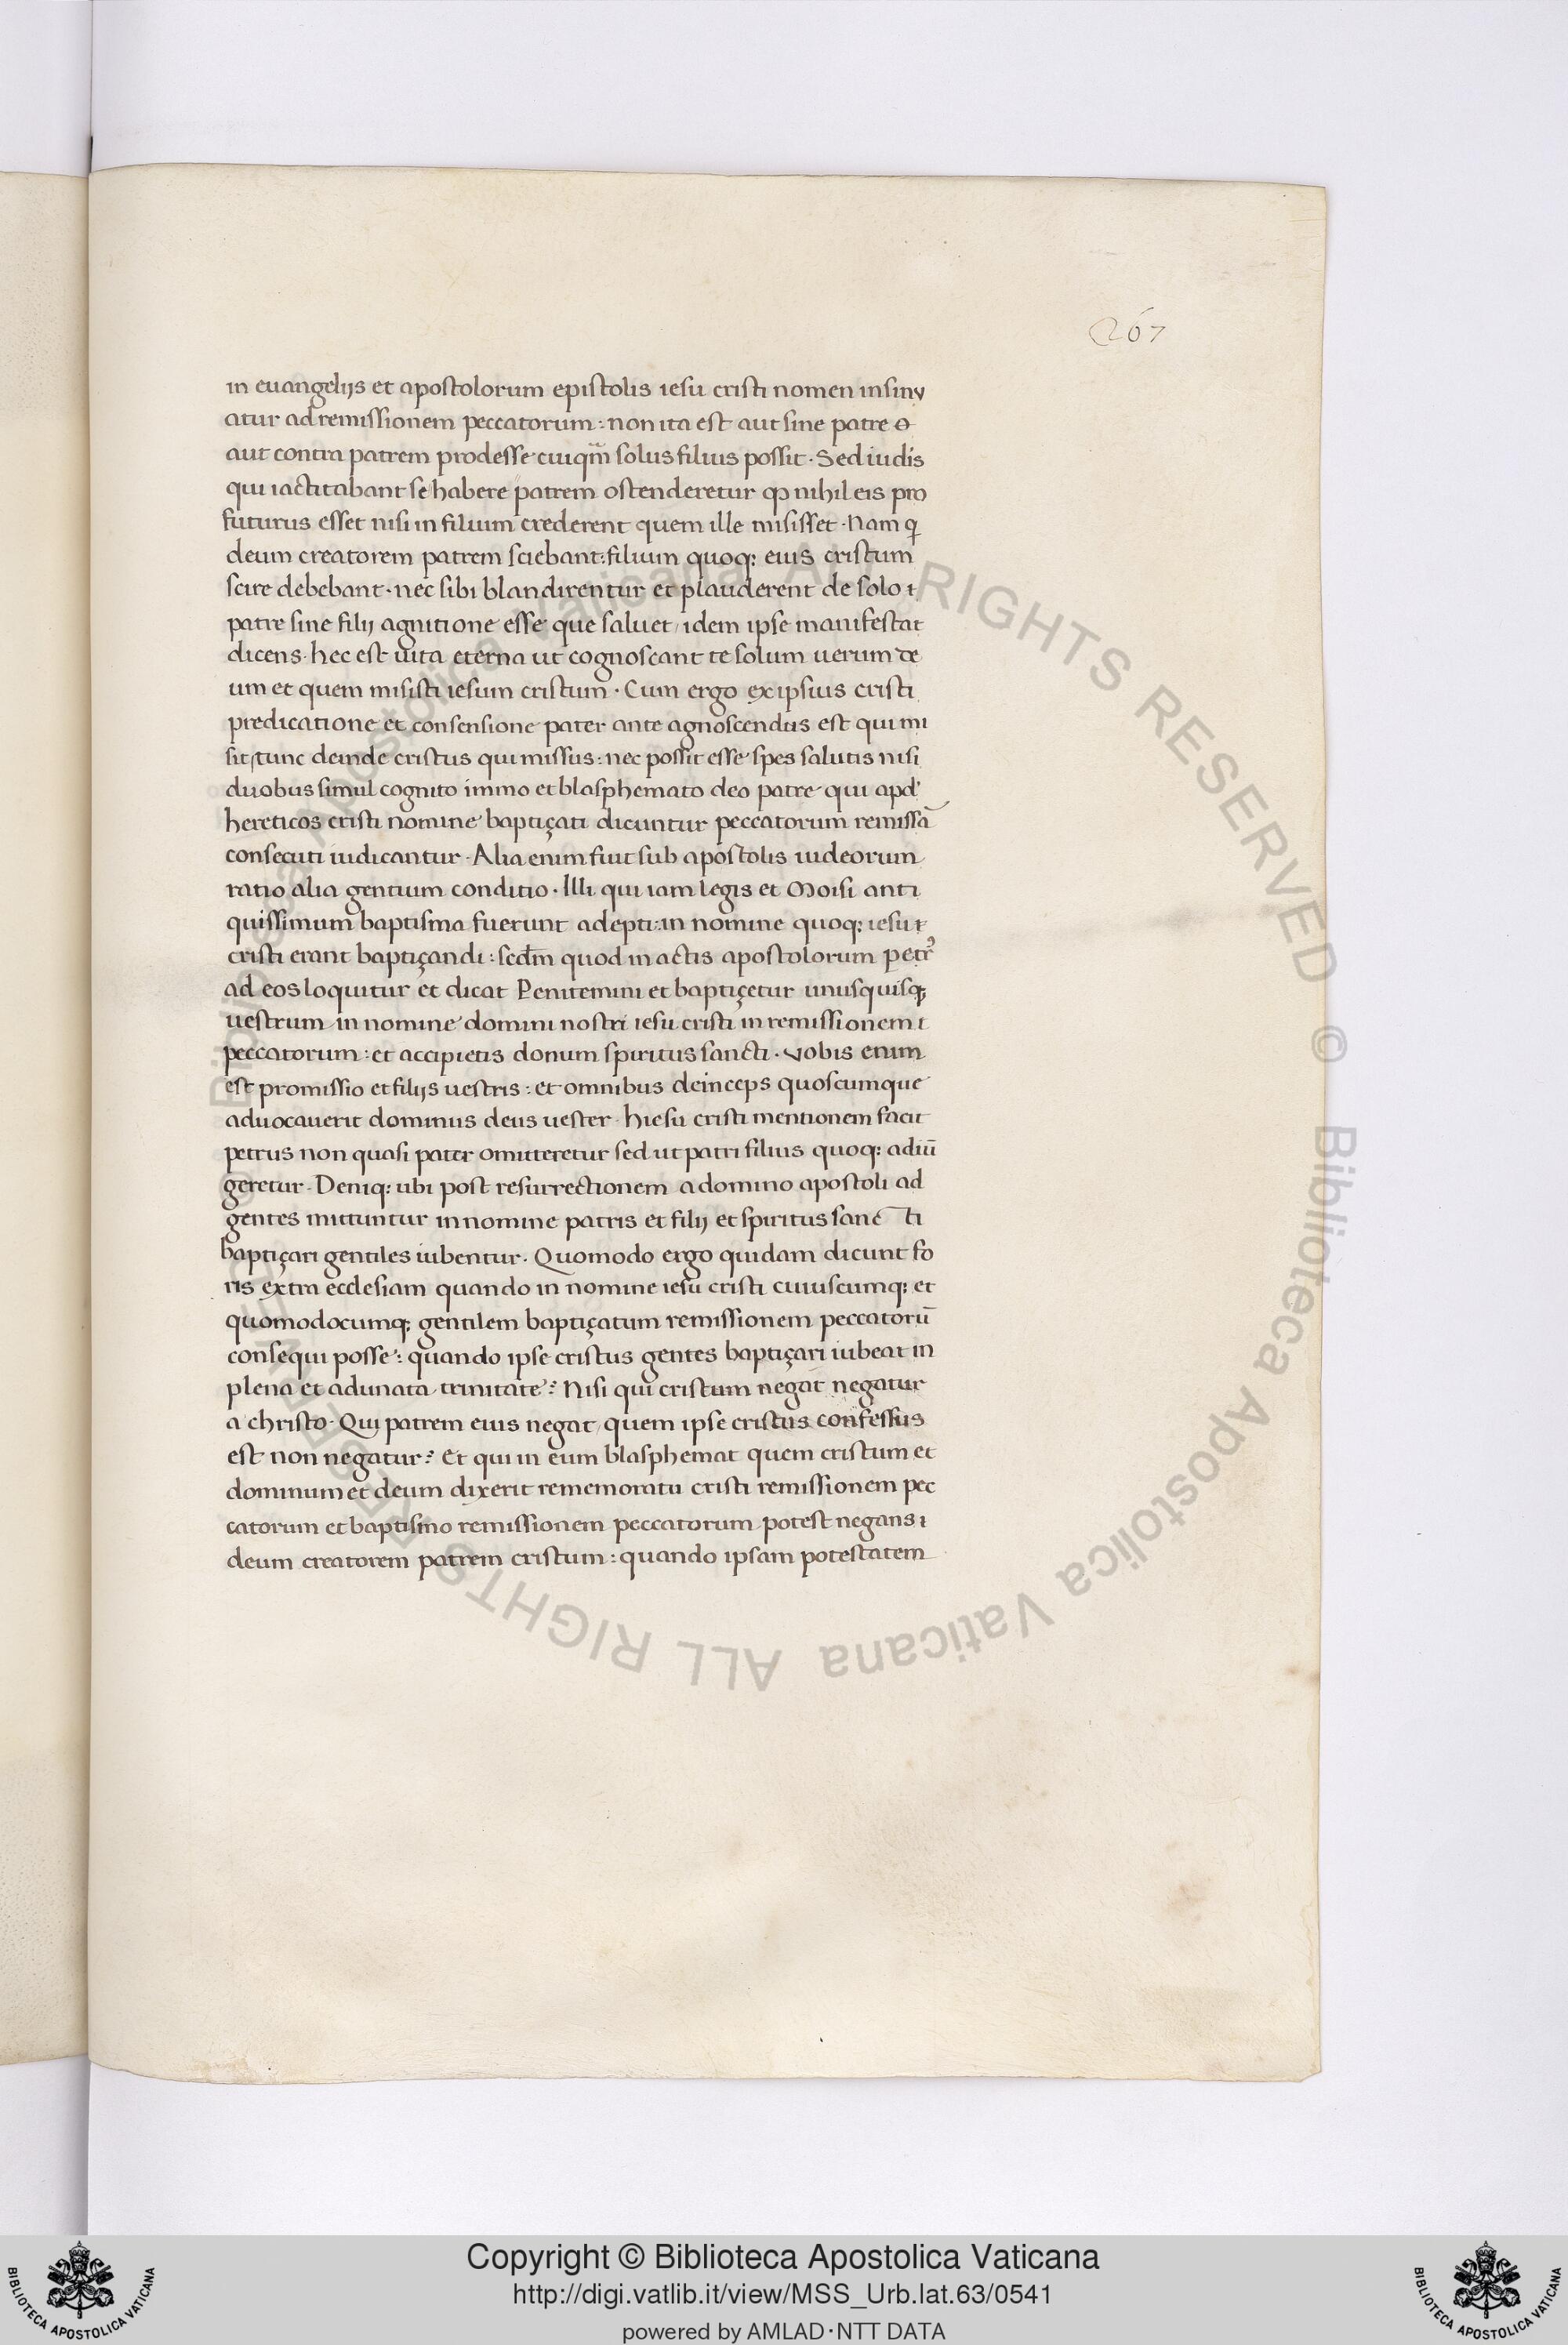 267
in euangelijs et apostolorum epistolis iesu cristi nomen insinv
atur ad remissionem peccatorum : non ita est aut sine patre
aut contra patrem prodesse cuiqm̄ solus filius possit · Sed iudis
qui iactitabant se habere patrem ostenderetur ꝙ nihil eis pro
futurus esset nisi in filium crederent quem ille misisset · Nam q̇
deum creatorem patrem sciebant : filium quoq; eius cristum
scire debebant · nec sibi blandirentur et plauderent de solo
patre sine filij agnitione esse que saluet / idem ipse manifestat
dicens · hec est uita eterna ut cognoscant te solum uerum de
um et quem misisti iesum cristum · Cum ergo ex ipsius cristi
predicatione et consensione pater ante agnoscendus est qui mi
sit / tunc deinde cristus qui missus : nec possit esse spes salutis nisi
duobus simul cognito immo et blasphemato deo patre qui apd'
hereticos cristi nomine baptiçati dicuntur peccatorum remissā
consecuti iudicantur · Alia enim fuit sub apostolis iudeorum
ratio alia gentium conditio · Illi qui iam legis et Moisi anti
quissimum baptisma fuerunt adepti : in nomine quoq; iesu
cristi erant baptiçandi : scd̄m quod in actis apostolorum petrꝰ
ad eos loquitur et dicat Penitemini et baptiçetur unusquisq;
uestrum in nomine domini nostri iesu cristi in remissionem
peccatorum : et accipietis donum spiritus sancti · vobis enim
est promissio et filijs uestris : et omnibus deinceps quoscumque
aduocauerit dominus deus uester · hiesu cristi mentionem facit
petrus non quasi pater omitteretur sed ut patri filius quoq; adiū
geretur · Deniq; ubi post resurrectionem a domino apostoli ad
gentes mittuntur in nomine patris et filij et spiritus sanc ti
baptiçari gentiles iubentur · Quomodo ergo quidam dicunt fo
ris extra ecclesiam quando in nomine iesu cristi cuiuscumq; et
quomodocumq; gentilem baptiçatum remissionem peccatorū
consequi posse : quando ipse cristus gentes baptiçari iubeat in
plena et adunata trinitate ? Nisi qui cristum negat negatur
a christo · Qui patrem eius negat / quem ipse cristus confessus
est non negatur ? Et qui in eum blasphemat quem cristum et
dominum et deum dixerit rememoratu cristi remissionem pec
catorum et baptismo remissionem peccatorum potest negans
deum creatorem patrem cristum : quando ipsam potestatem
© Biblioteca Apostolica Vaticana ALL RIGHTS RESERVED © Biblioteca Apostolica Vaticana ALL RIGHTS RESERVED
Copyright © Biblioteca Apostolica Vaticana
http://digi.vatlib.it/view/MSS_Urb.lat.63/0541
powered by AMLAD·NTT DATA
BIBLIOTECA APOSTOLICA VATICANA
BIBLIOTECA APOSTOLICA VATICANA